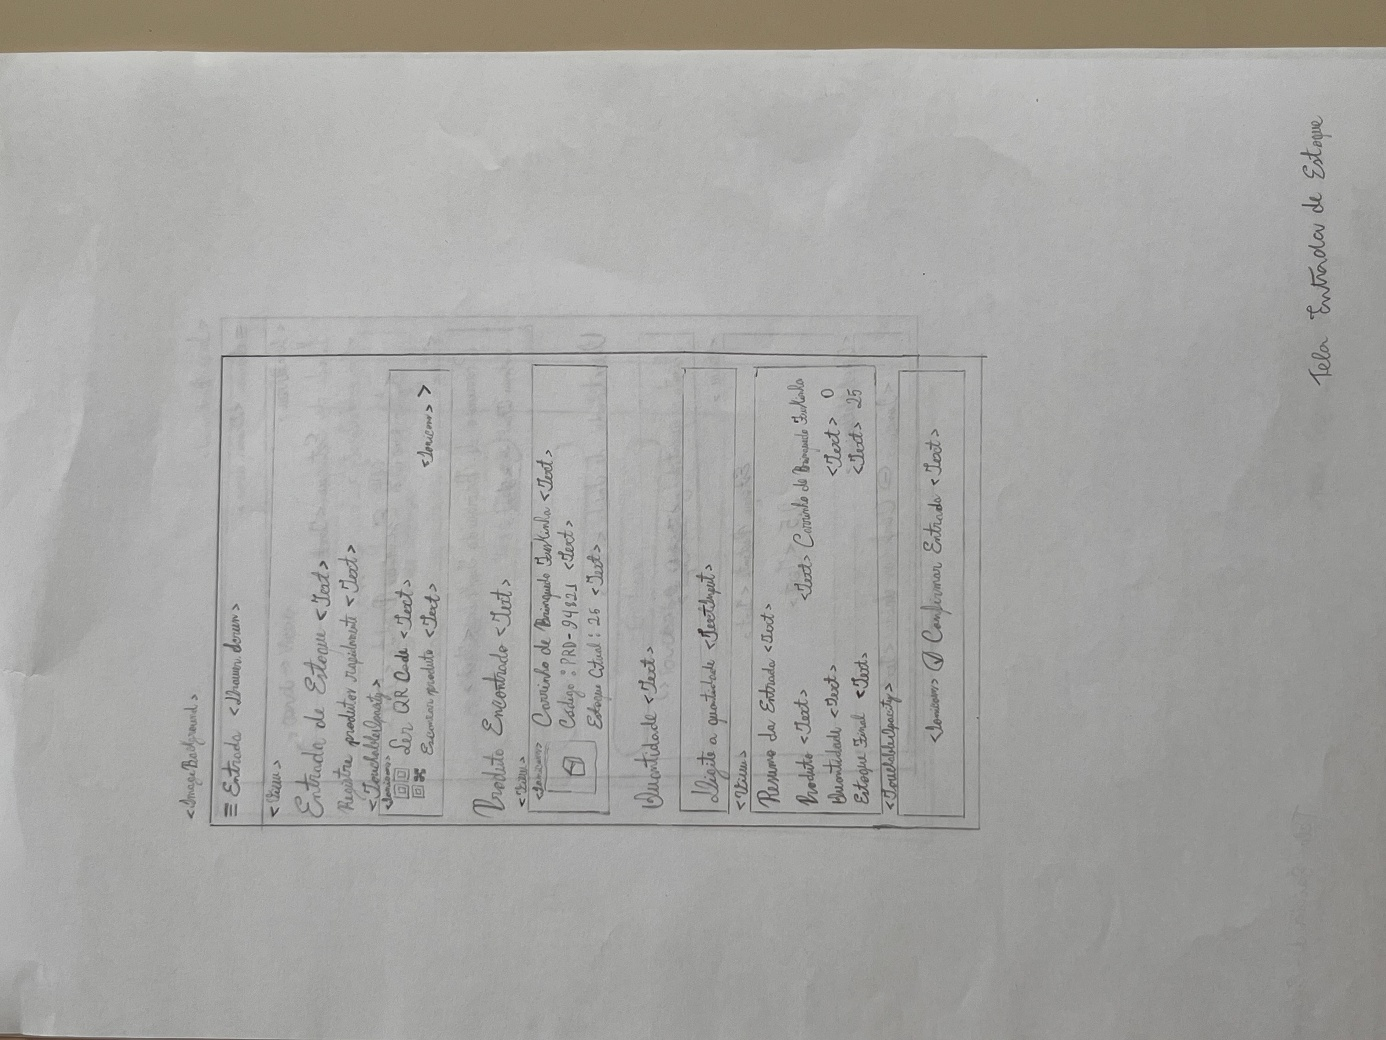 <ImageBackground>
≡ Entrada <drawericon>
<View>
Entrada de Estoque <Text>
Registre produtos rapidamente <Text>
<TouchableOpacity>
<Ionicons>
Ler QR Code <Text>
Escanear produto <Text>
<Ionicons> >
Produto Encontrado <Text>
<View>
<Ionicons> Carrinho de Brinquedo Fuskinha <Text>
Código: PRD-94821 <Text>
Estoque Atual: 25 <Text>
Quantidade <Text>
Digite a quantidade <TextInput>
<View>
Resumo da Entrada <Text>
Produto <Text> <Text> Carrinho de Brinquedo Fuskinha
Quantidade <Text> <Text> 0
Estoque Final <Text> <Text> 25
<TouchableOpacity>
<Ionicons> Confirmar Entrada <Text>
Tela Entrada de Estoque